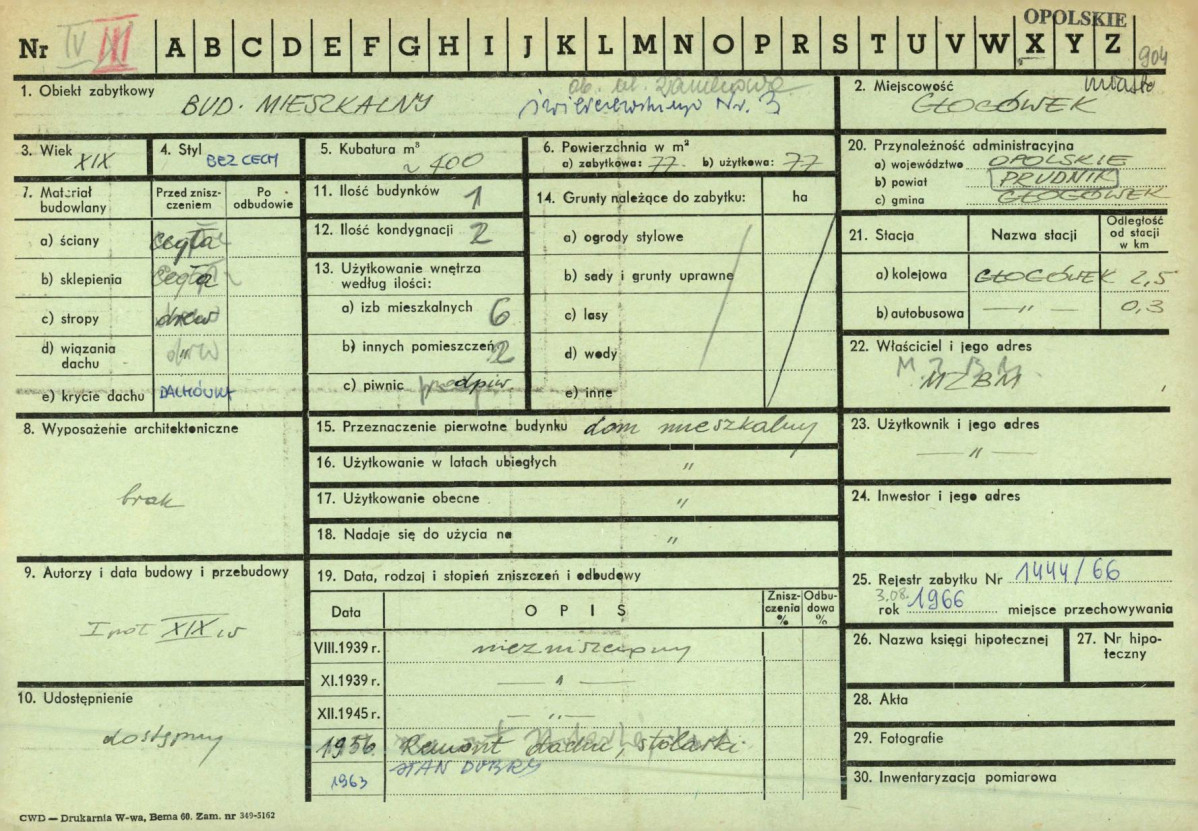 OPOLSKIE
Nr IV III A B C D E F G H I J K L M N O P R S T U V W X Y Z
904
1. Obiekt zabytkowy BUD. MIESZKALNY
ob. ul. Zamkowa
Świerczewskiego Nr. 3
2. Miejscowość miasto
GŁOGÓWEK
3. Wiek XIX
4. Styl BEZ CECH
5. Kubatura m³ ~ 400
6. Powierzchnia w m²
a) zabytkowa: 77. b) użytkowa: 77
20. Przynależność administracyjna
a) województwo OPOLSKIE
b) powiat PRUDNIK
c) gmina GŁOGÓWEK
7. Materiał budowlany
Przed zniszczeniem
Po odbudowie
a) ściany cegła
b) sklepienia cegła
c) stropy drew
d) wiązania dachu drw
e) krycie dachu DACHÓWKA
11. Ilość budynków 1
12. Ilość kondygnacji 2
13. Użytkowanie wnętrza według ilości:
a) izb mieszkalnych 6
b) innych pomieszczeń 2
c) piwnic podpiw
14. Grunty należące do zabytku: ha
a) ogrody stylowe
b) sady i grunty uprawne
c) lasy
d) wody
e) inne
21. Stacja
Nazwa stacji
Odległość od stacji w km
a) kolejowa GŁOGÓWEK 2,5
b) autobusowa — " — 0,3
22. Właściciel i jego adres
MZBM
MZBM
8. Wyposażenie architektoniczne
brak
15. Przeznaczenie pierwotne budynku dom mieszkalny
16. Użytkowanie w latach ubiegłych "
17. Użytkowanie obecne "
18. Nadaje się do użycia na "
23. Użytkownik i jego adres
— " —
24. Inwestor i jego adres
9. Autorzy i data budowy i przebudowy
I poł XIX w
10. Udostępnienie
dostępny
19. Data, rodzaj i stopień zniszczeń i odbudowy
Data OPIS Zniszczenia % Odbudowa %
VIII.1939 r. niezniszczony
XI.1939 r. — " —
XII.1945 r. — " —
1956. Remont dachu, stolarki
1963 STAN DOBRY
25. Rejestr zabytku Nr 1444/66
3.08.
rok 1966 miejsce przechowywania
26. Nazwa księgi hipotecznej
27. Nr hipoteczny
28. Akta
29. Fotografie
30. Inwentaryzacja pomiarowa
CWD — Drukarnia W-wa, Bema 60. Zam. nr 349-5162